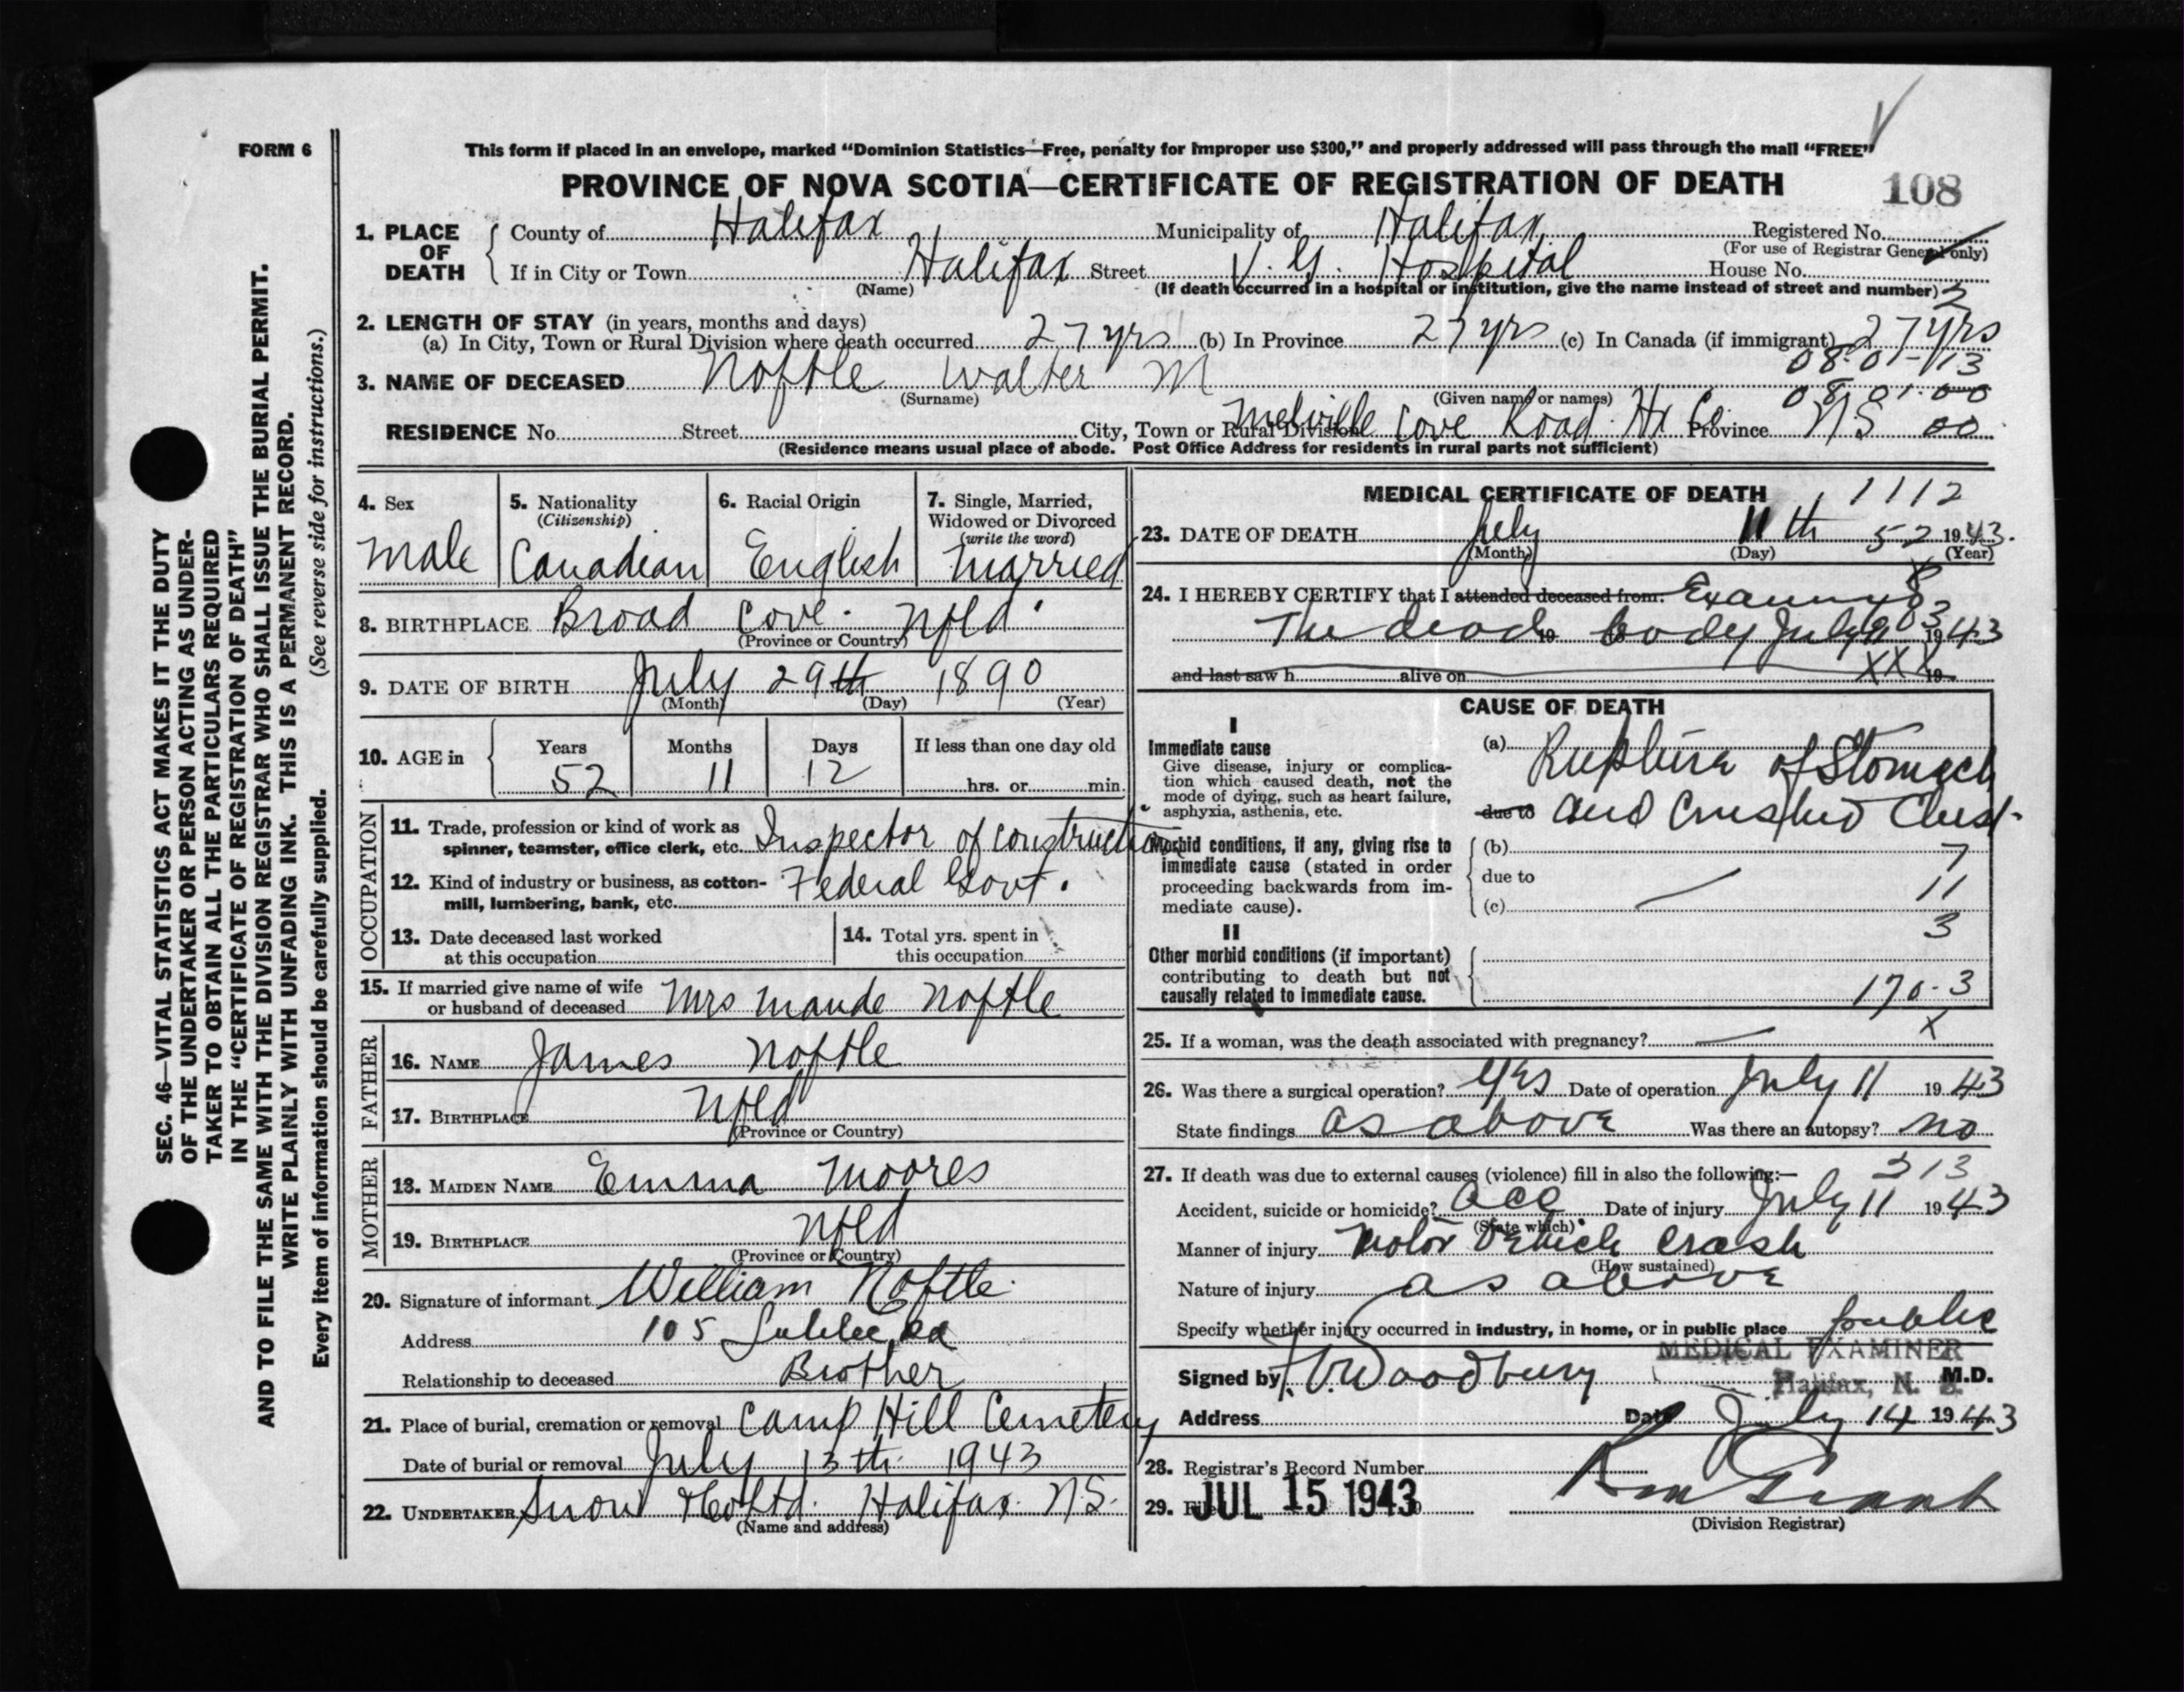 FORM 6
This form if placed in an envelope, marked “Dominion Statistics—Free, penalty for improper use $300,” and properly addressed will pass through the mail “FREE”
PROVINCE OF NOVA SCOTIA—CERTIFICATE OF REGISTRATION OF DEATH 108
1. PLACE OF DEATH County of Halifax Municipality of Halifax Registered No.
(For use of Registrar General only)
If in City or Town Halifax Street V. G. Hospital House No.
(Name) (If death occurred in a hospital or institution, give the name instead of street and number) 3
2. LENGTH OF STAY (in years, months and days)
(a) In City, Town or Rural Division where death occurred 27 yrs (b) In Province 27 yrs (c) In Canada (if immigrant) 27 yrs
08-01-13
3. NAME OF DECEASED Noftle Walter M
(Surname) (Given name or names) 08-01-00
RESIDENCE No. Street City, Town or Rural Division Melville Cove Road Hx Co. Province N.S 00
(Residence means usual place of abode. Post Office Address for residents in rural parts not sufficient)
4. Sex Male
5. Nationality (Citizenship) Canadian
6. Racial Origin English
7. Single, Married, Widowed or Divorced (write the word) Married
8. BIRTHPLACE Broad Cove Nfld
(Province or Country)
9. DATE OF BIRTH July 29th 1890
(Month) (Day) (Year)
10. AGE in Years 52 Months 11 Days 12 If less than one day old hrs. or min.
OCCUPATION
11. Trade, profession or kind of work as
spinner, teamster, office clerk, etc. Inspector of construction
12. Kind of industry or business, as cotton-
mill, lumbering, bank, etc. Federal Govt.
13. Date deceased last worked
at this occupation
14. Total yrs. spent in
this occupation
15. If married give name of wife
or husband of deceased Mrs Maude Noftle
FATHER
16. NAME James Noftle
17. BIRTHPLACE Nfld
(Province or Country)
MOTHER
18. MAIDEN NAME Emma Moores
19. BIRTHPLACE Nfld
(Province or Country)
20. Signature of informant William Noftle
Address 105 Jubilee Rd
Relationship to deceased Brother
21. Place of burial, cremation or removal Camp Hill Cemetery
Date of burial or removal July 13th 1943
22. UNDERTAKER Snow & Co Ltd. Halifax N.S.
(Name and address)
MEDICAL CERTIFICATE OF DEATH 1112
23. DATE OF DEATH July 11th 52 1943.
(Month) (Day) (Year)
24. I HEREBY CERTIFY that I attended deceased from:
The dead body July 1943
and last saw h alive on XXX 19
CAUSE OF DEATH
I
Immediate cause
Give disease, injury or complica-
tion which caused death, not the
mode of dying, such as heart failure,
asphyxia, asthenia, etc.
(a) Rupture of Stomach
due to and Crushed Chest.
Morbid conditions, if any, giving rise to
immediate cause (stated in order
proceeding backwards from im-
mediate cause).
(b) 7
due to 11
(c)
3
II
Other morbid conditions (if important)
contributing to death but not
causally related to immediate cause.
170-3
25. If a woman, was the death associated with pregnancy? X
26. Was there a surgical operation? Yes Date of operation July 11 1943
State findings as above Was there an autopsy? no
27. If death was due to external causes (violence) fill in also the following:— 313
Accident, suicide or homicide? acc Date of injury July 11 1943
(State which)
Manner of injury Motor Vehicle Crash
(How sustained)
Nature of injury as above
Specify whether injury occurred in industry, in home, or in public place public
MEDICAL EXAMINER
Signed by Woodbury M.D.
Halifax, N. S.
Address Date July 14 1943
28. Registrar's Record Number
29. JUL 15 1943
(Division Registrar)
SEC. 46—VITAL STATISTICS ACT MAKES IT THE DUTY
OF THE UNDERTAKER OR PERSON ACTING AS UNDER-
TAKER TO OBTAIN ALL THE PARTICULARS REQUIRED
IN THE “CERTIFICATE OF REGISTRATION OF DEATH”
AND TO FILE THE SAME WITH THE DIVISION REGISTRAR WHO SHALL ISSUE THE BURIAL PERMIT.
WRITE PLAINLY WITH UNFADING INK. THIS IS A PERMANENT RECORD.
Every item of information should be carefully supplied. (See reverse side for instructions.)